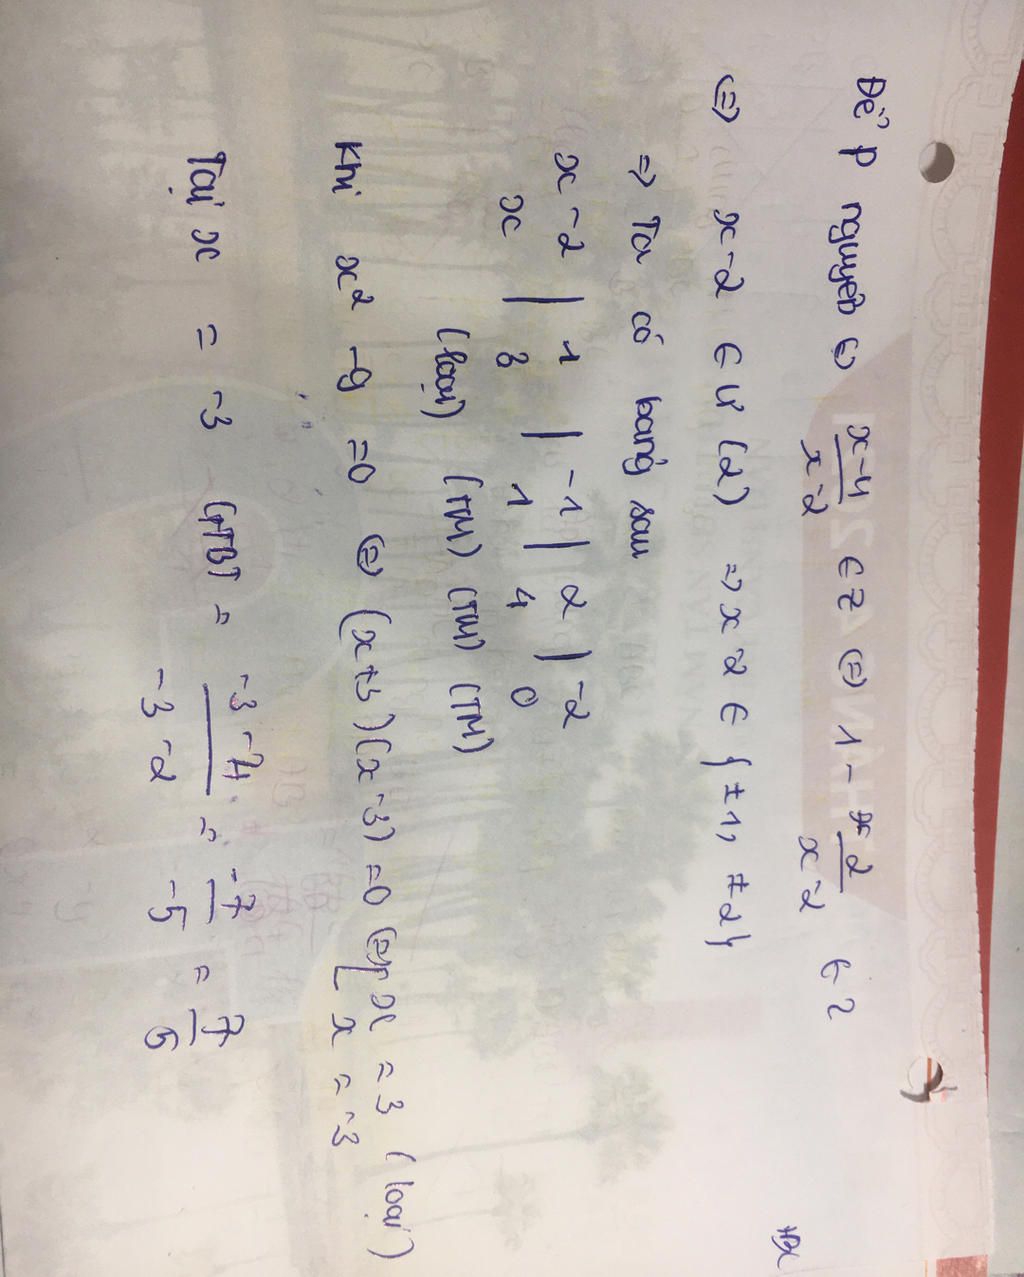 Để P nguyên ⇔ x-4/x-2 ∈ Z ⇔ 1 - 2/x-2 ∈ Z
⇔ x-2 ∈ Ư(2) ⇒ x-2 ∈ {±1, ±2}
⇒ Ta có bảng sau
x-2 | 1 | -1 | 2 | -2
x | 3 | 1 | 4 | 0
(loại) (TM) (TM) (TM)
Khi x² -9 =0 ⇔ (x+3)(x-3) =0 ⇔ [ x = 3 (loại)
x = -3
Tại x = -3 (TM) = -3-4/-3-2 = -7/-5 = 7/5